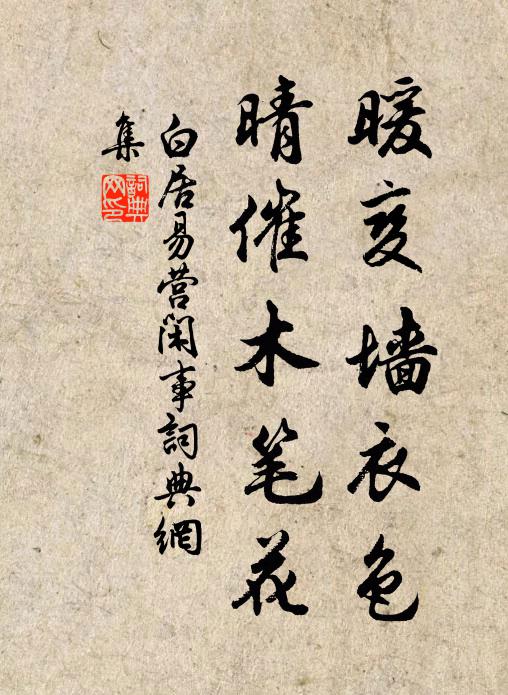 暖变墙衣色
晴催木笔花
白居易营闲事詞典網
集
詞典
网印